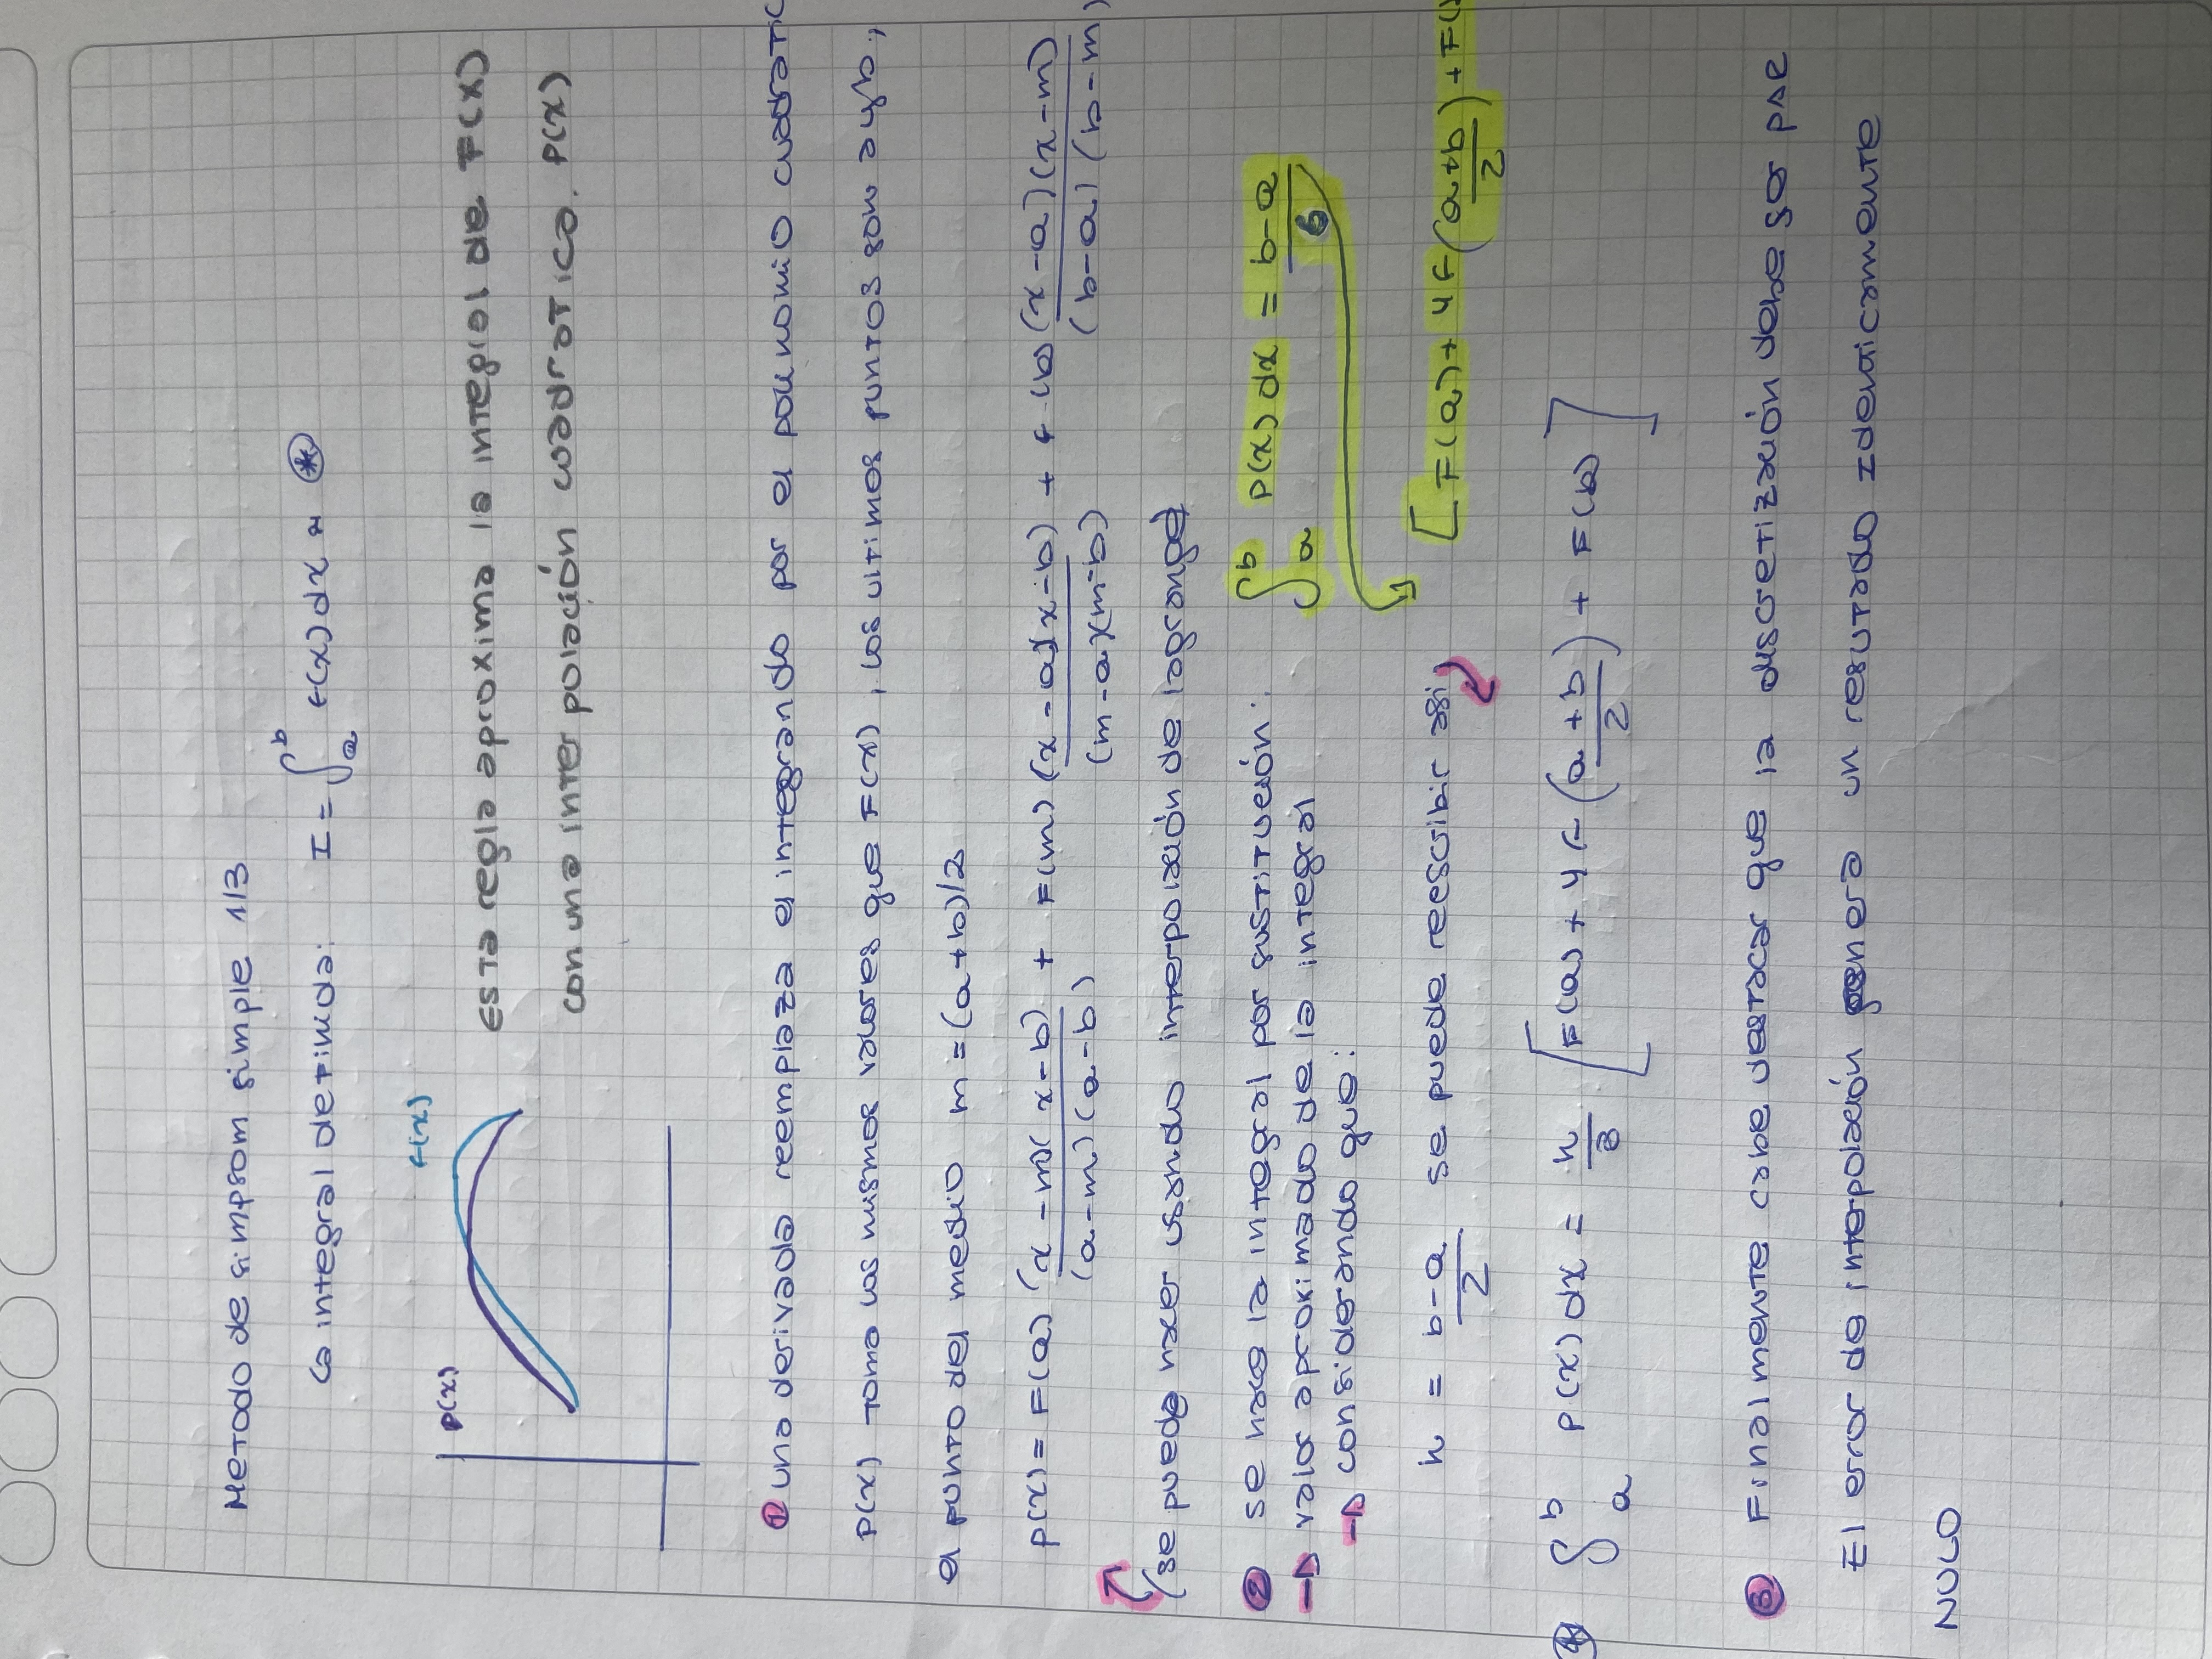 Metodo de simpsom simple 1/3
La integral definida: I = ∫_a^b f(x) dx ≈ ⊛
f(x)
p(x)
Esta regla aproxima la integral de F(x)
con una interpolación cuadratica. P(x)
① una derivada reemplaza el integrando por el polinomio cuadratic
P(x) toma los mismos valores que F(x), los ultimos puntos son a y b,
el punto del medio m = (a+b)/2
p(x) = F(a) (x-m)(x-b)/(a-m)(a-b) + F(m) (x-a)(x-b)/(m-a)(m-b) + f(b) (x-a)(x-m)/(b-a)(b-m)
(se puede hacer usando interpolación de lagrange)
② se hace la integral por sustitución: ∫_a^b P(x) dx = b-a/6
→ valor aproximado de la integral
→ considerando que:
h = b-a/2 se puede reescribir asi [F(a) + 4F(a+b/2) + F(
⊛ ∫_a^b P(x) dx = h/3 [F(a) + 4F(a+b/2) + F(b)]
③ Finalmente cabe destacar que la discretización debe ser par
El error de interpolación genera un resultado Identicamente
NULO